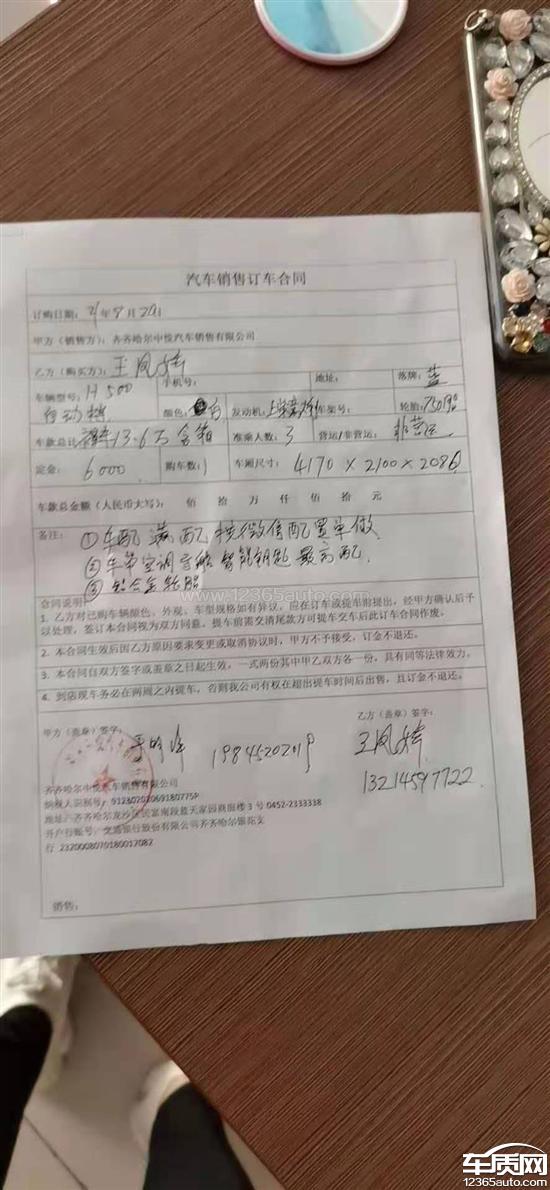 汽车销售订车合同
订购日期：21年9月20日
甲方（销售方）：齐齐哈尔中悦汽车销售有限公司
乙方（购买方）：王凤 手机号： 地址： 落牌：蓝
车辆型号：H500 自动档 颜色：白 发动机： 车架号： 轮胎：750
车款总计 13.6万含箱 准乘人数：3 营运/非营运：非营运
定金：6000 购车数：1 车厢尺寸：4170×2100×2086
车款总金额（人民币大写）： 佰 拾 万 仟 佰 拾 元
备注：①车配满配按微信配置单做
②车带空调 智能钥匙 最高配
③铝合金轮胎
www.12365auto.com
合同说明：
1、乙方对已购车辆颜色、外观、车型规格如有异议，应在订车或提车前提出，经甲方确认后予
以处理，签订本合同视为双方同意，提车前需交清尾款方可提车交车后此订车合同作废。
2、本合同生效后因乙方原因要求变更或取消协议时，甲方不予接受，订金不退还。
3、本合同自双方签字或盖章之日起生效，一式两份其中甲乙双方各一份，具有同等法律效力。
4、到店现车务必在两周之内提车，否则我公司有权在超出提车时间后出售，且订金不退还。
甲方（盖章）签字： 19845202019
乙方（盖章）签字：
王凤
13214597722
齐齐哈尔中悦汽车销售有限公司
纳税人识别号：
地址：齐齐哈尔龙沙区民富南段蓝天家园商服楼3号 0452-2333338
开户行账号：交通银行股份有限公司齐齐哈尔银花支
行 232000807018001?082
销售：
车质网
12365auto.com